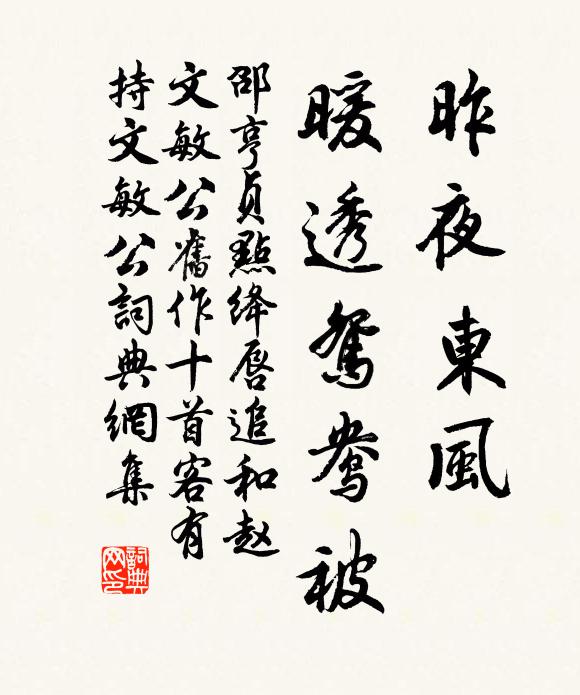 昨夜東風
暖透鴛鴦被
邵亨貞點絳唇追和赵
文敏公舊作十首客有
持文敏公詞典網集
詞典網印